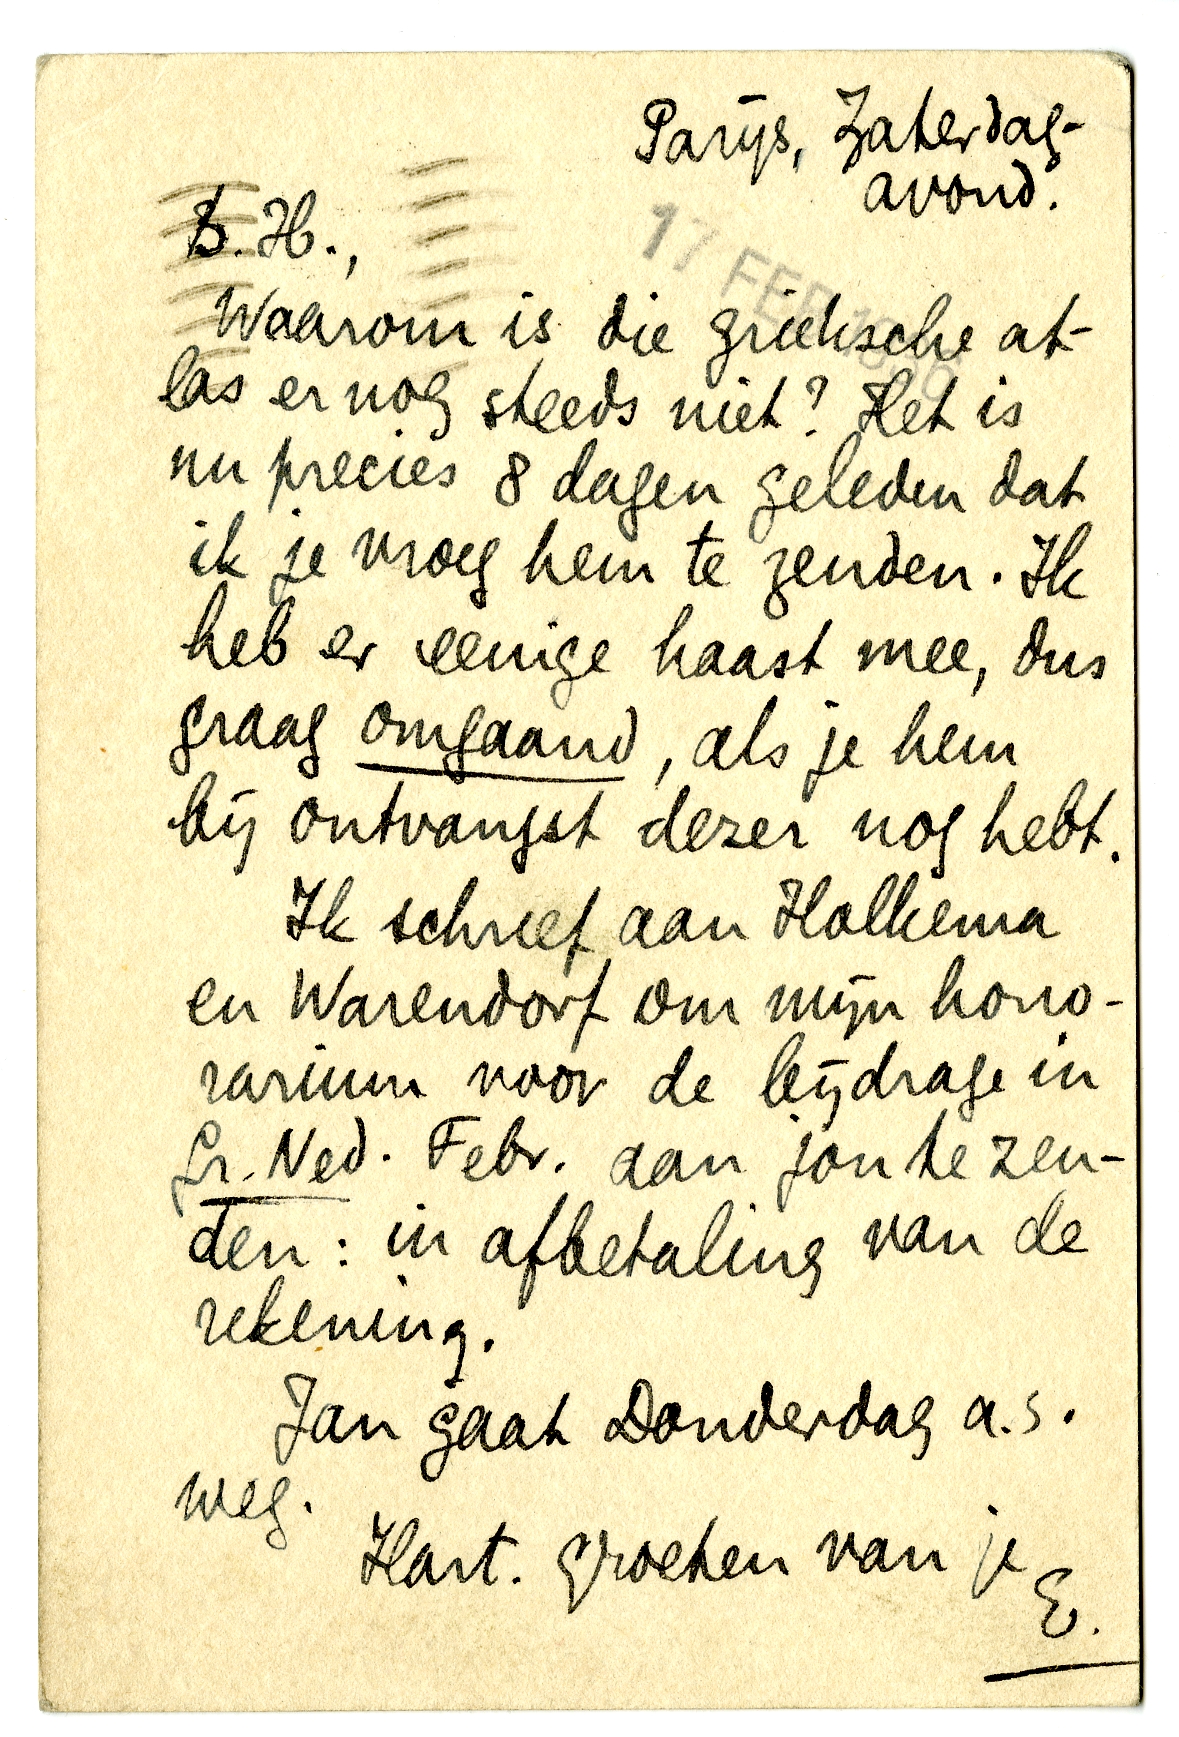 Parijs, Zaterdag-
avond.
B.H.,
Waarom is die grieksche at-
las er nog steeds niet? Het is
nu precies 8 dagen geleden dat
ik je vroeg hem te zenden. Ik
heb er eenige haast mee, dus
graag omgaand, als je hem
bij ontvangst dezer nog hebt.
Ik schreef aan Holkema
en Warendorf om mijn hono-
rarium voor de bijdrage in
Gr. Ned. Febr. aan jou te zen-
den: in afbetaling van de
rekening.
Jan gaat Donderdag a.s.
weg.
Hart. groeten van je
E.
17 FEB